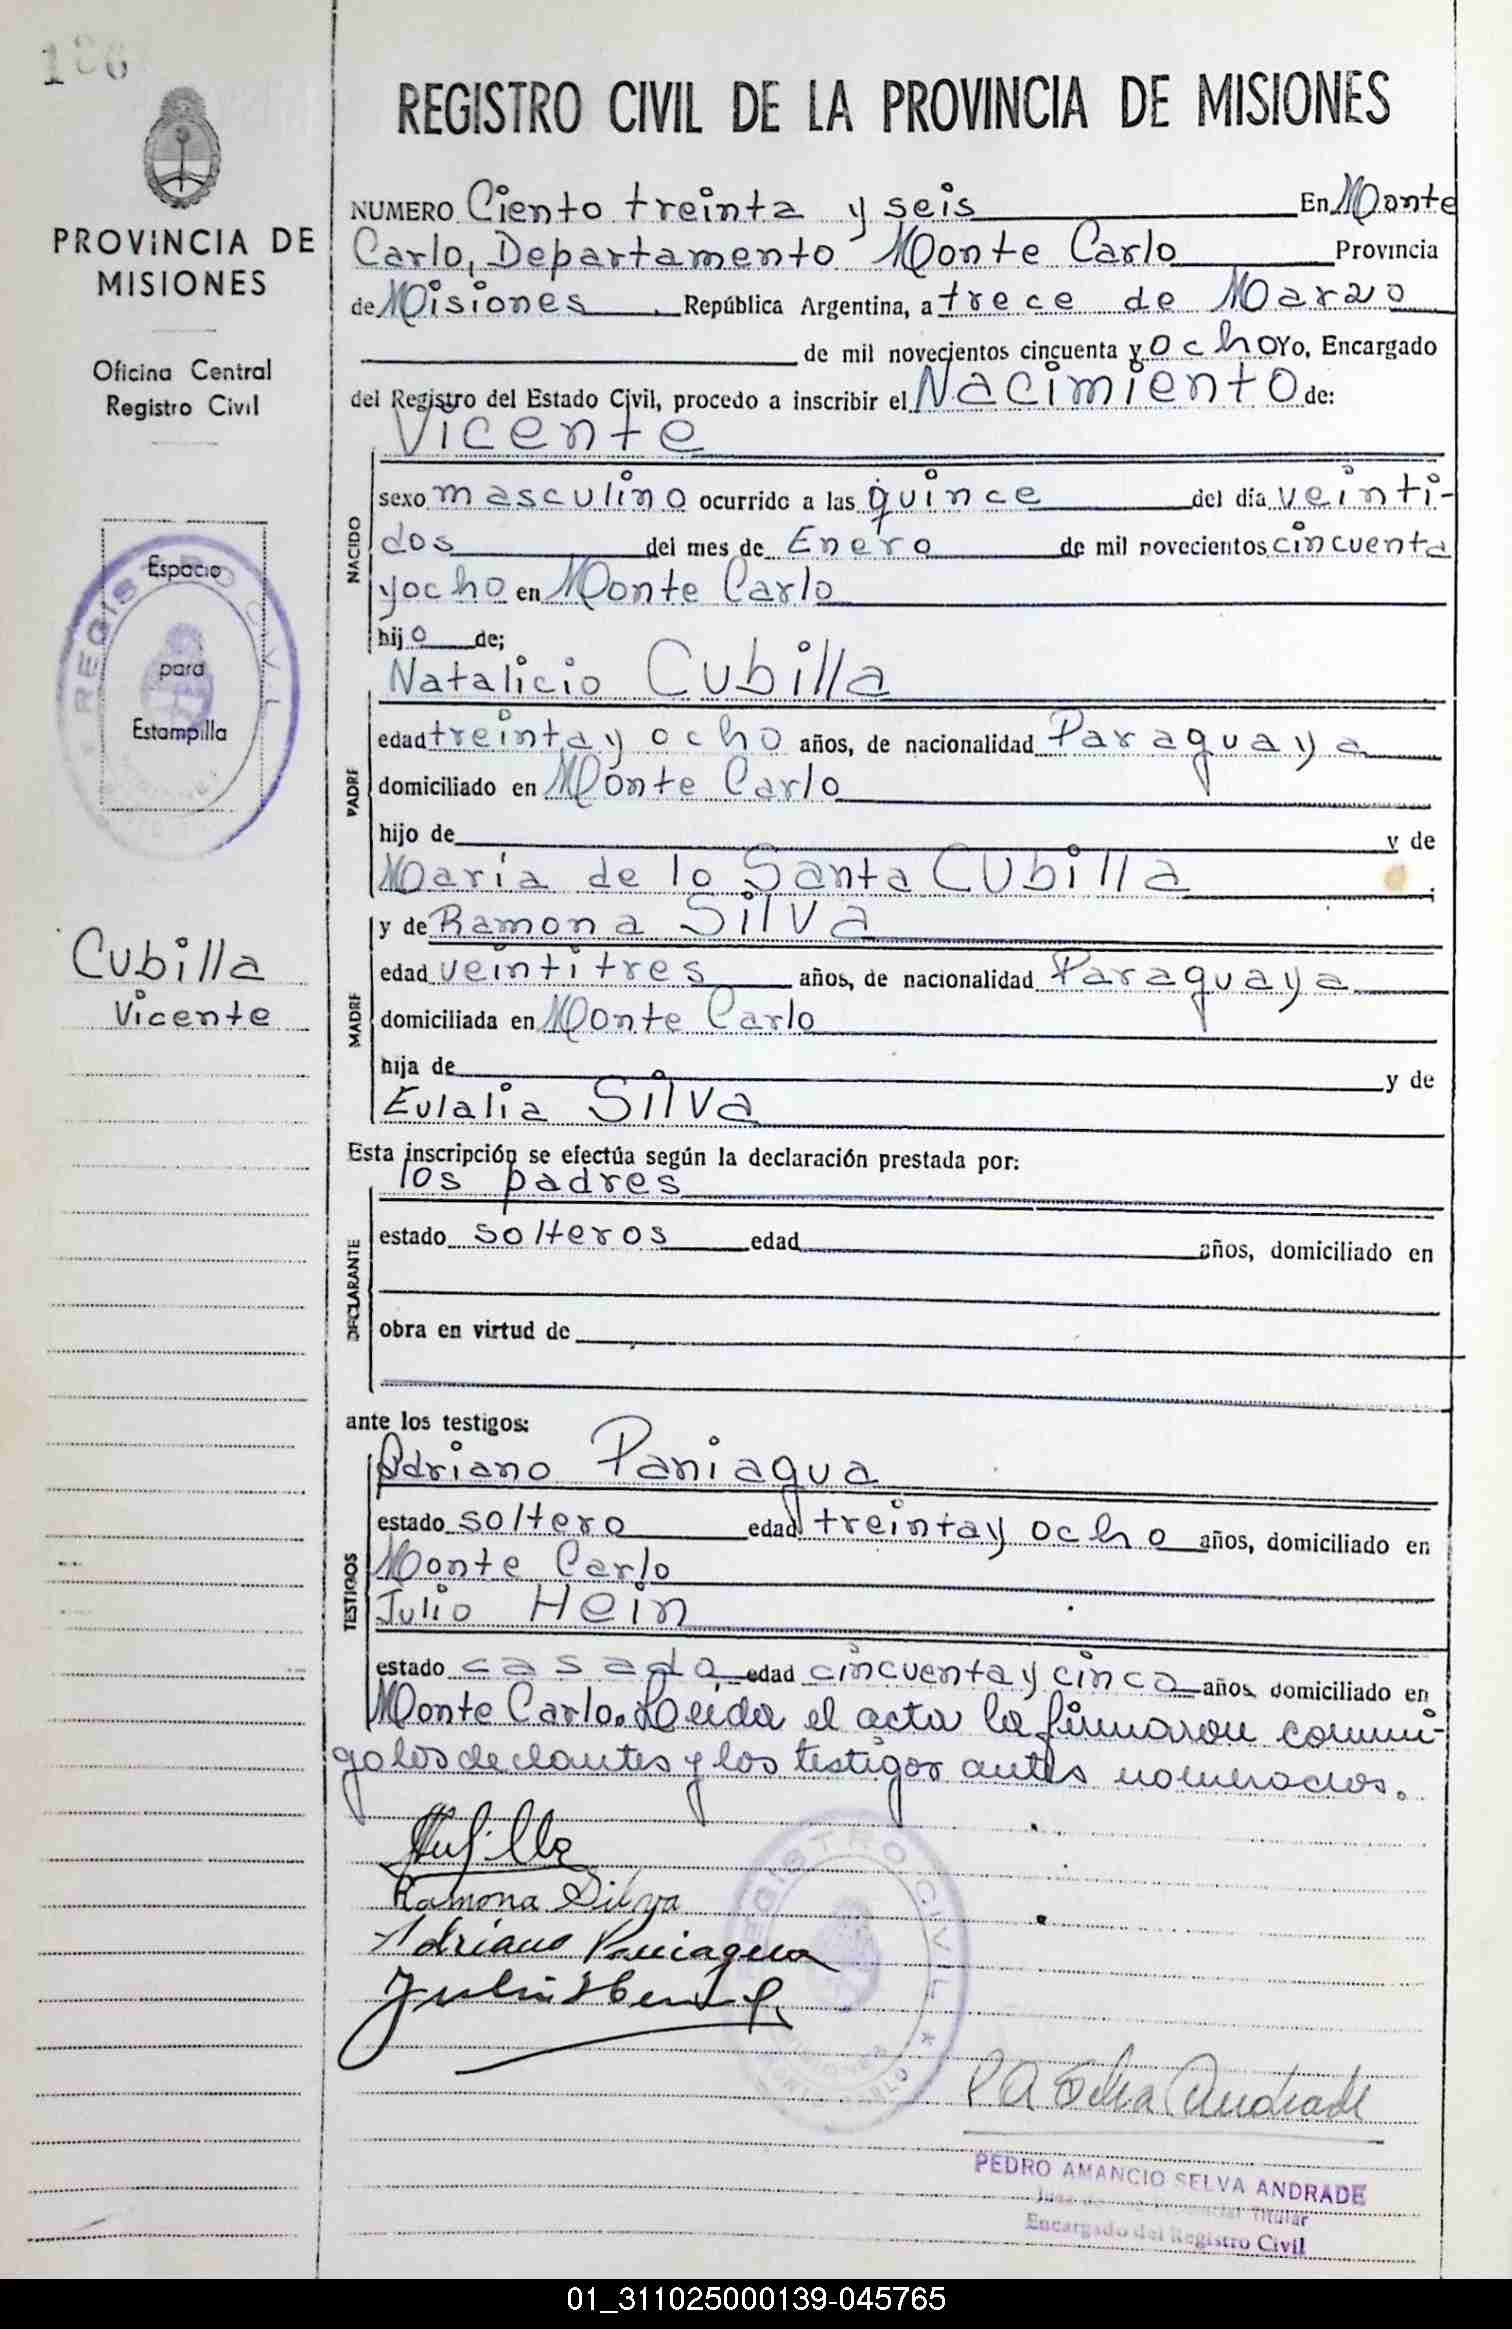 136
REGISTRO CIVIL DE LA PROVINCIA DE MISIONES
PROVINCIA DE
MISIONES
Oficina Central
Registro Civil
Espacio
para
Estampilla
REGISTRO CIVIL
Cubilla
Vicente
NUMERO Ciento treinta y seis En Monte
Carlo, Departamento Monte Carlo Provincia
de Misiones República Argentina, a trece de Marzo
de mil novecientos cincuenta y ocho Yo, Encargado
del Registro del Estado Civil, procedo a inscribir el Nacimiento de:
Vicente
NACIDO
sexo masculino ocurrido a las quince del día veinti-
dos del mes de Enero de mil novecientos cincuenta
y ocho en Monte Carlo
hijo de;
Natalicio Cubilla
PADRE
edad treinta y ocho años, de nacionalidad Paraguaya
domiciliado en Monte Carlo
hijo de y de
María de lo Santa Cubilla
y de Ramona Silva
MADRE
edad veintitres años, de nacionalidad Paraguaya
domiciliada en Monte Carlo
hija de y de
Eulalia Silva
Esta inscripción se efectúa según la declaración prestada por:
los padres
DECLARANTE
estado solteros edad años, domiciliado en
obra en virtud de
ante los testigos:
Adriano Paniagua
TESTIGOS
estado soltero edad treinta y ocho años, domiciliado en
Monte Carlo
Julio Hein
estado casado edad cincuenta y cinco años, domiciliado en
Monte Carlo. Leida el acta la firmaron conmi-
go los declantes y los testigos antes nomrados.
Ramona Silva
Adriano Paniagua
REGISTRO CIVIL
MONTE CARLO
P A Selva Andrade
PEDRO AMANCIO SELVA ANDRADE
Titular
Encargado del Registro Civil
01_311025000139-045765